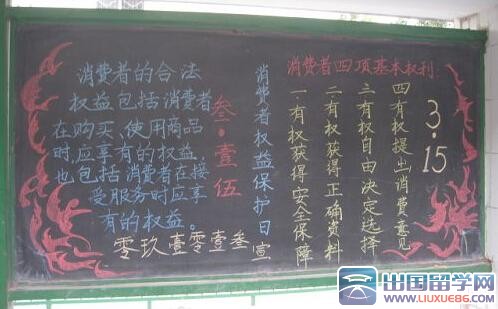 消费者的合法
权益包括消费者
在购买、使用商品
时，应享有的权益，
也包括消费者在接
受服务时应享
有的权益。
叁·壹伍
消费者权益保护日宣
零玖壹零壹叁
消费者四项基本权利:
一有权获得安全保障
二有权获得正确资料
三有权自由决定选择
四有权提出消费意见
3.15
出国留学网
WWW.LIUXUE86.COM